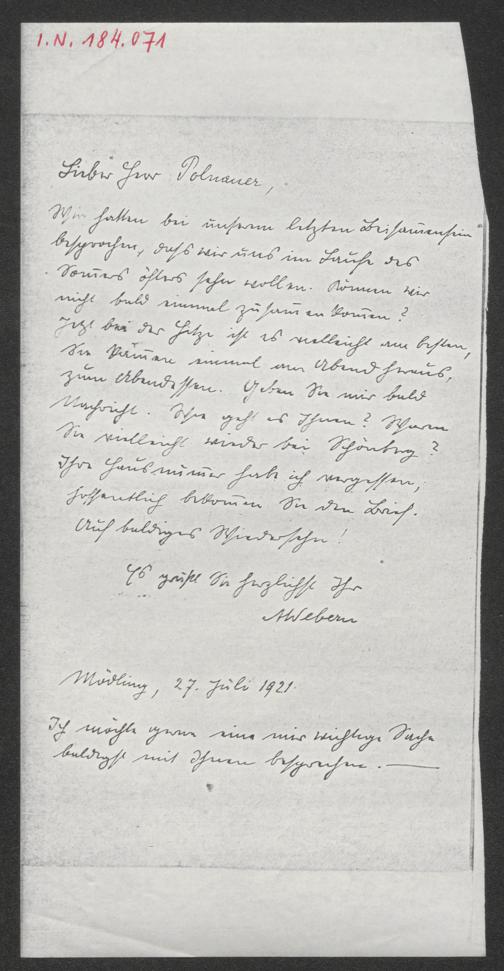 I.N. 184.071
Lieber Herr Polnauer,
Wir hatten bei unserem letzten Beisam̄ensein
besprochen, dass wir uns im Laufe des
Som̄ers öfters sehn wollen. Können wir
nicht bald einmal zusam̄en kom̄en?
Jetzt bei der Hitze ist es vielleicht am besten,
Sie kām̄en einmal am Abend heraus,
zum Abendessen. Geben Sie mir bald
Nachricht. Wie geht es Ihnen? Waren
Sie vielleicht wieder bei Schönberg?
Ihre Hausnum̄er habe ich vergessen;
hoffentlich bekom̄en Sie den Brief.
Auf baldiges Wiedersehn!
Es grüßt Sie herzlichst Ihr
AWebern
Mödling, 27. Juli 1921.
Ich möchte gerne eine mir wichtige Sache
baldigst mit Ihnen besprechen. —